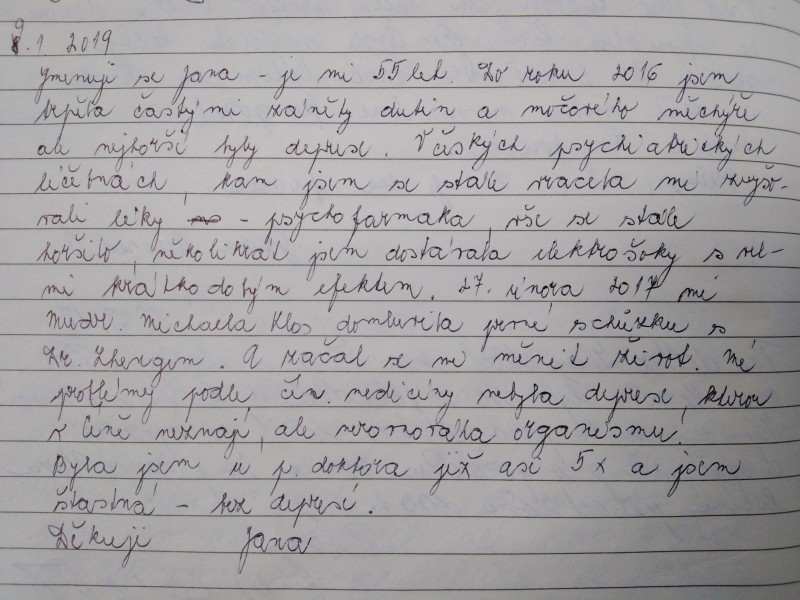 9.1 2019
Jmenuji se Jana - je mi 55 let. Do roku 2016 jsem
trpěla častými záněty dutin a močového měchýře
ale nejhorší byly deprese. V českých psychiatrických
léčebnách, kam jsem se stále vracela mi zvyšo-
vali léky - psychofarmaka, vše se stále
horšilo, několikrát jsem dostávala elektrošoky s vel-
mi krátkodobým efektem. 27. února 2017 mi
Mudr. Michaela Klos domluvila první schůzku s
Dr. Zhengem. A začal se mi měnit život. Mé
problémy podle čín. medicíny nebyla deprese, kterou
v Číně neznají, ale nerovnováha organismu.
Byla jsem u p. doktora již asi 5x a jsem
šťastná - bez depresí.
Děkuji Jana